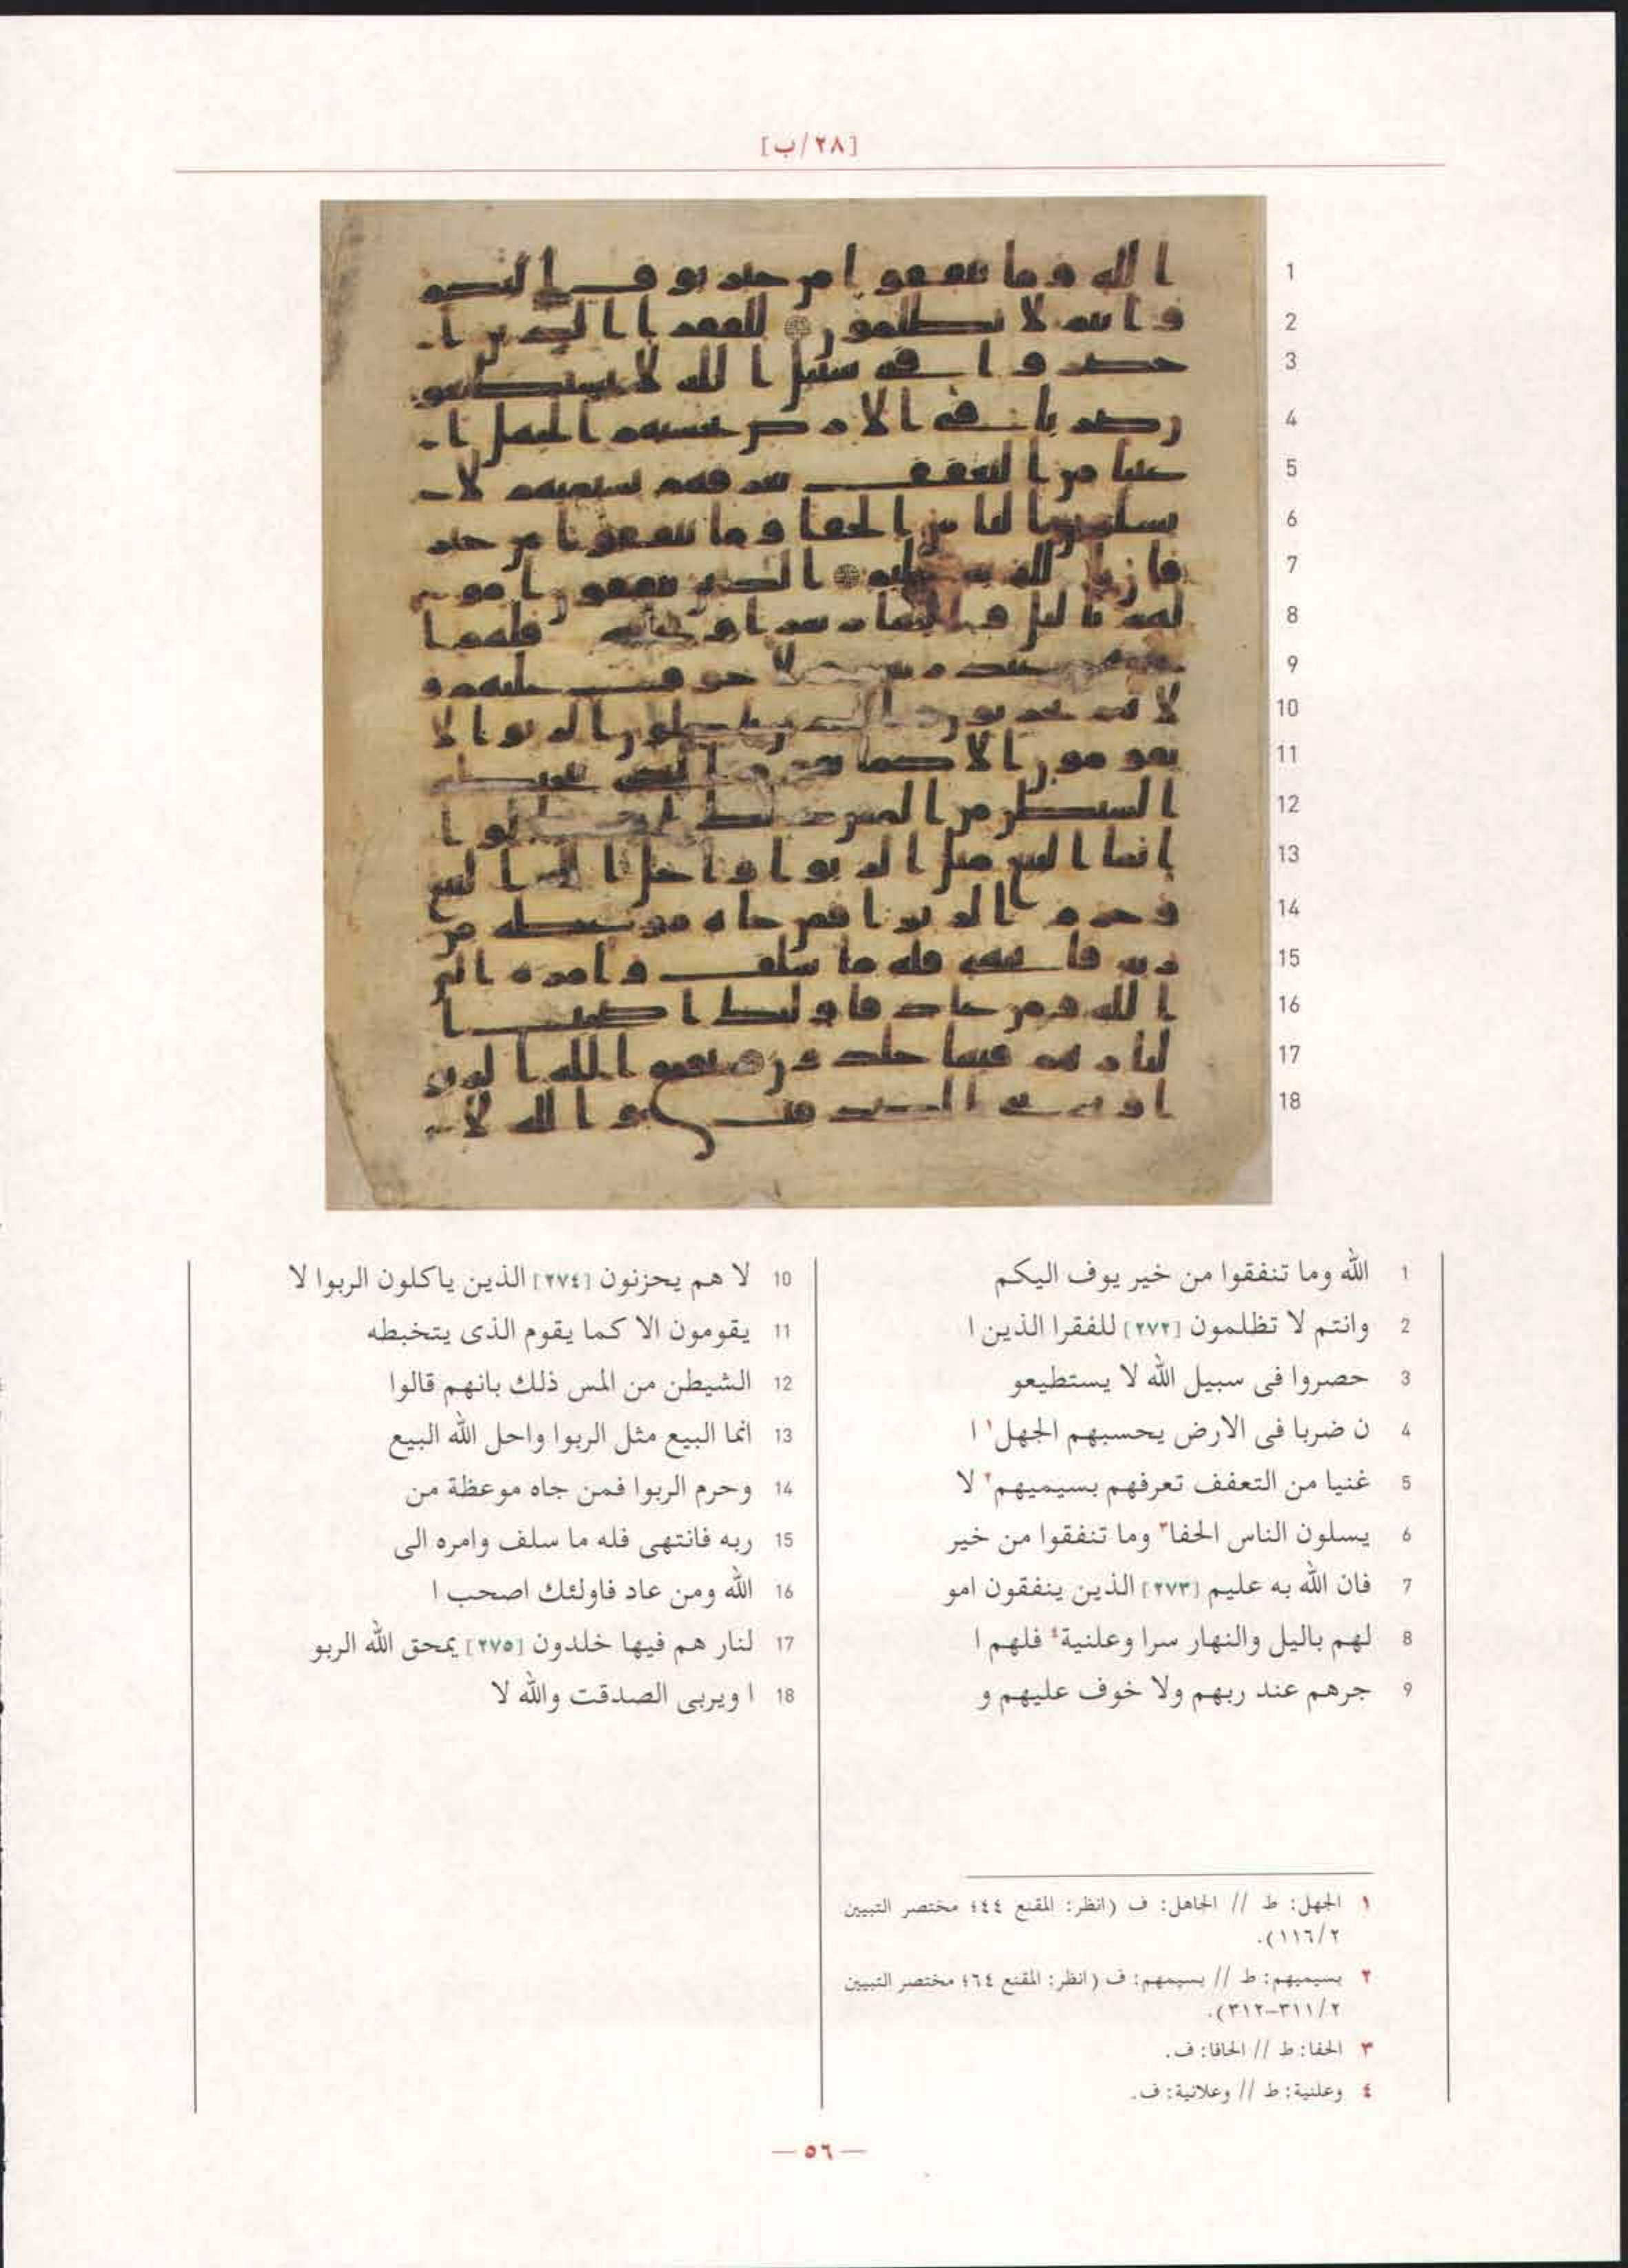 [٢٨/ب]
1 الله وما تنفقوا من خير يوف اليكم
2 وانتم لا تظلمون [٢٧٢] للفقرا الذين ا
3 حصروا فى سبيل الله لا يستطيعو
4 ن ضربا فى الارض يحسبهم الجهل١ ا
5 غنيا من التعفف تعرفهم بسيميهم٢ لا
6 يسلون الناس الحفا٣ وما تنفقوا من خير
7 فان الله به عليم [٢٧٣] الذين ينفقون امو
8 لهم باليل والنهار سرا وعلنية٤ فلهم ا
9 جرهم عند ربهم ولا خوف عليهم و
10 لا هم يحزنون [٢٧٤] الذين ياكلون الربوا لا
11 يقومون الا كما يقوم الذى يتخبطه
12 الشيطن من المس ذلك بانهم قالوا
13 انما البيع مثل الربوا واحل الله البيع
14 وحرم الربوا فمن جاه موعظة من
15 ربه فانتهى فله ما سلف وامره الى
16 الله ومن عاد فاولئك اصحب ا
17 لنار هم فيها خلدون [٢٧٥] يمحق الله الربو
18 ا ويربى الصدقت والله لا
١ الجهل: ط // الجاهل: ف (انظر: المقنع ٤٤؛ مختصر التبيين
٢/١١٦).
٢ بسيميهم: ط // بسيمهم: ف (انظر: المقنع ٦٤؛ مختصر التبيين
٢/٣١١-٣١٢).
٣ الحفا: ط // الحافا: ف.
٤ وعلنية: ط // وعلانية: ف.
— ٥٦ —